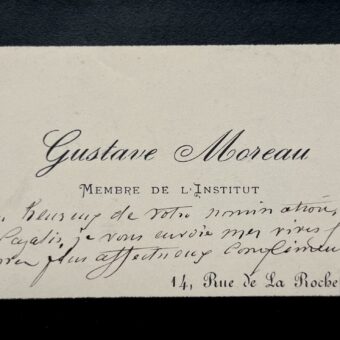 Gustave Moreau
MEMBRE DE L'INSTITUT
heureux de votre nomination,
Cazalis, je vous envoie mes vives f
plus affectueux complimen
14, Rue de La Roche